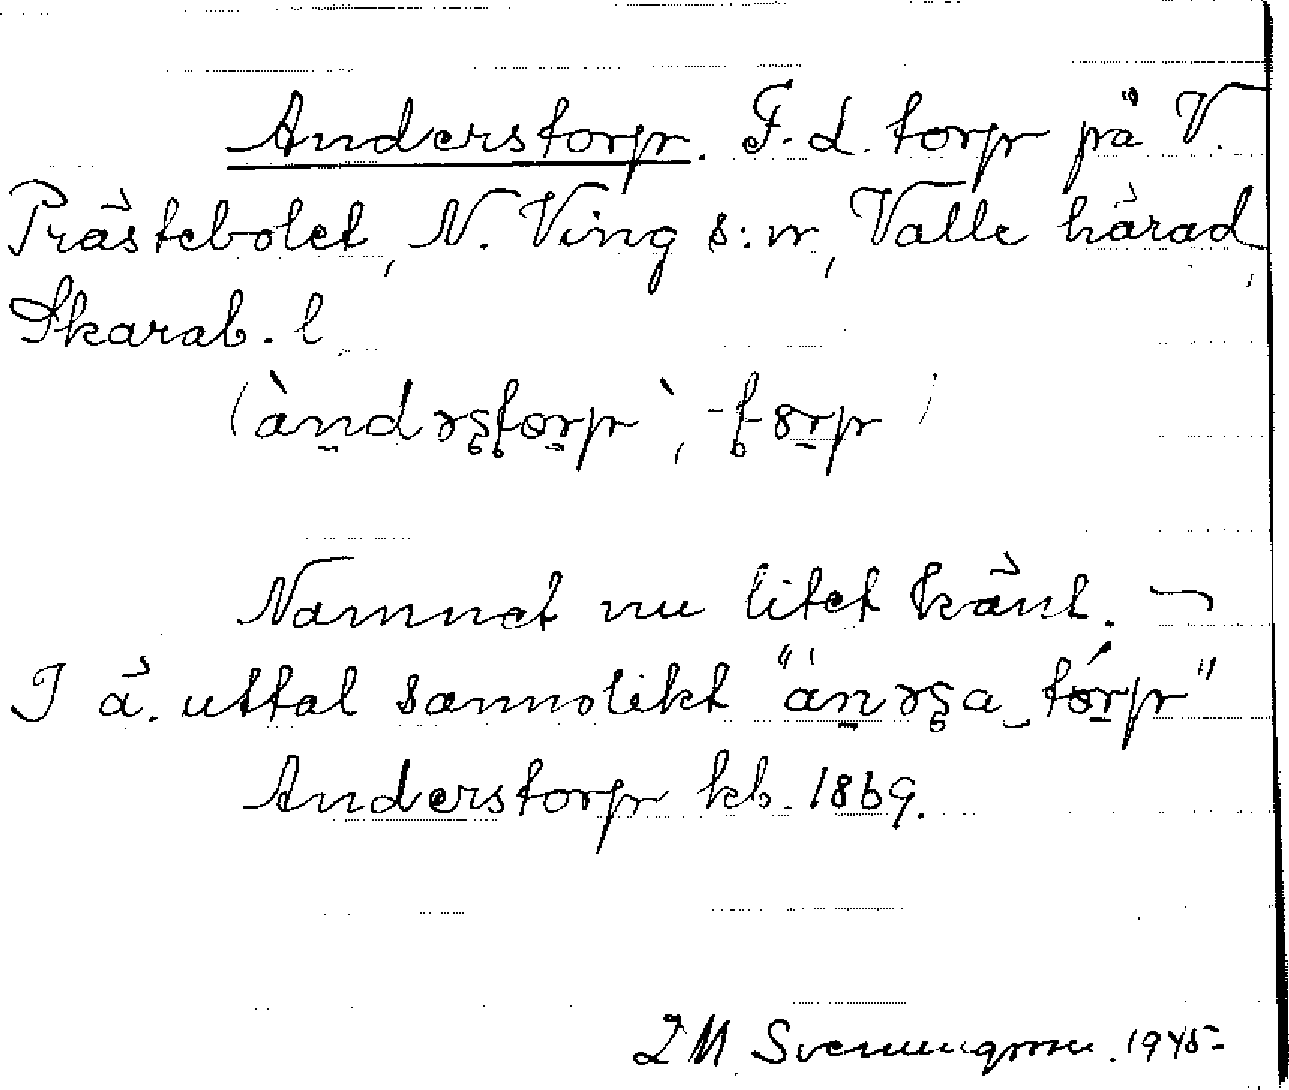 Anderstorp. F.d. torp på V.
Prästebolet, N. Ving s:n, Valle härad,
Skarab. l.
(àndəʂtorp`, -tɞrp)
Namnet nu litet känt. –
I ä. uttal sannolikt "ánəʂa_tórp"
Anderstorp kb. 1869.
Svenungsson. 1945